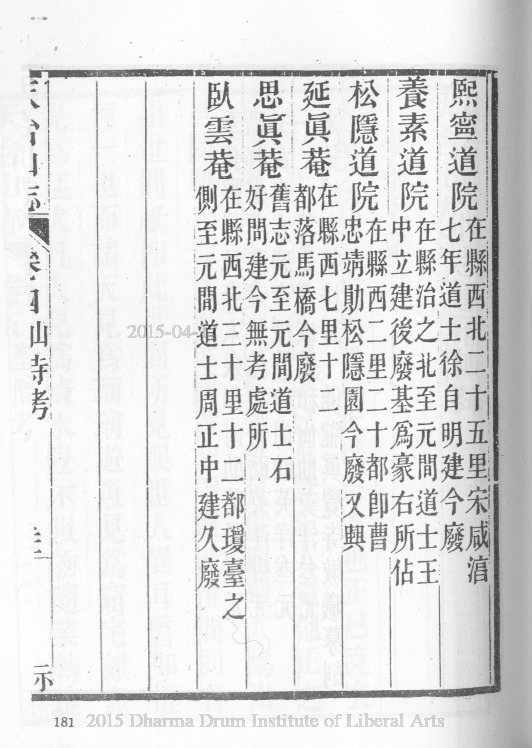 熙寧道院在縣西北二十五里宋咸淳
七年道士徐自明建今廢
養素道院在縣治之北至元間道士王
中立建後廢基爲豪右所佔
松隱道院在縣西二里二十都卽曹
忠靖勛松隱園今廢又興
延眞菴在縣西七里十二
都落馬橋今廢
思眞菴舊志元至元間道士石
好問建今無考處所
臥雲菴在縣西北三十里十一都瓊臺之
側至元間道士周正中建久廢
寺考
示
2015-04-
181
2015 Dharma Drum Institute of Liberal Arts